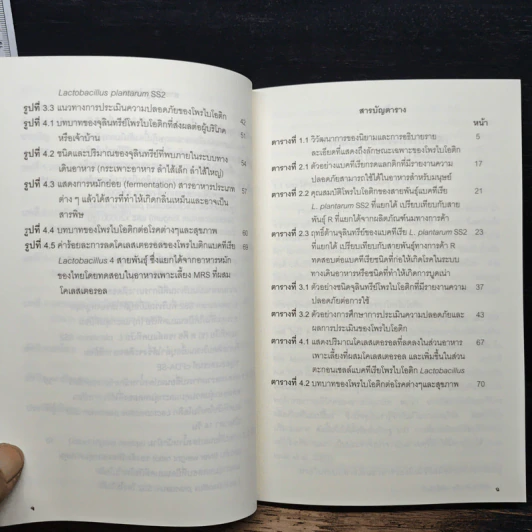 Lactobacillus plantarum SS2
รูปที่ 3.3 แนวทางการประเมินความปลอดภัยของโพรไบโอติก 42
รูปที่ 4.1 บทบาทของจุลินทรีย์โพรไบโอติกที่ส่งผลต่อผู้บริโภค 51
หรือเจ้าบ้าน
รูปที่ 4.2 ชนิดและปริมาณของจุลินทรีย์ที่พบภายในระบบทาง 54
เดินอาหาร (กระเพาะอาหาร ลำไส้เล็ก ลำไส้ใหญ่)
รูปที่ 4.3 แสดงการหมักย่อย (fermentation) สารอาหารประเภท 57
ต่าง ๆ แล้วได้สารที่ทำให้เกิดกลิ่นเหม็นและอาจเป็น
สารพิษ
รูปที่ 4.4 บทบาทของโพรไบโอติกต่อโรคต่างๆและสุขภาพ 60
รูปที่ 4.5 ค่าร้อยละการลดโคเลสเตอรอลของโพรไบติกแบคทีเรีย 69
Lactobacillus 4 สายพันธุ์ ซึ่งแยกได้จากอาหารหมัก
ของไทยโดยทดสอบในอาหารเพาะเลี้ยง MRS ที่ผสม
โคเลสเตอรอล
สารบัญตาราง
หน้า
ตารางที่ 1.1 วิวัฒนาการของนิยามและการอธิบายราย 5
ละเอียดที่แสดงถึงลักษณะเฉพาะของโพรไบโอติก
ตารางที่ 2.1 ตัวอย่างแบคทีเรียกรดแลกติกที่มีรายงานความ 17
ปลอดภัยสามารถใช้ได้ในอาหารสำหรับมนุษย์
ตารางที่ 2.2 คุณสมบัติโพรไบโอติกของสายพันธุ์แบคทีเรีย 21
L. plantarum SS2 ที่แยกได้ เปรียบเทียบกับสาย
พันธุ์ R ที่แยกได้จากผลิตภัณฑ์นมทางการค้า
ตารางที่ 2.3 ฤทธิ์ต้านจุลินทรีย์ของแบคทีเรีย L. plantarum SS2 23
ที่แยกได้ เปรียบเทียบกับสายพันธุ์ทางการค้า R
ทดสอบต่อแบคทีเรียชนิดที่ก่อให้เกิดโรคในระบบ
ทางเดินอาหารหรือชนิดที่ทำให้เกิดการบูดเน่า
ตารางที่ 3.1 ตัวอย่างชนิดจุลินทรีย์โพรไบโอติกที่มีรายงานความ 37
ปลอดภัยต่อการใช้
ตารางที่ 3.2 ตัวอย่างการศึกษาการประเมินความปลอดภัยและ 43
ผลการประเมินของโพรไบโอติก
ตารางที่ 4.1 แสดงปริมาณโคเลสเตอรอลที่ลดลงในส่วนอาหาร 67
เพาะเลี้ยงที่ผสมโคเลสเตอรอล และเพิ่มขึ้นในส่วน
ตะกอนเซลล์แบคทีเรียโพรไบโอติก Lactobacillus
ตารางที่ 4.2 บทบาทของโพรไบโอติกต่อโรคต่างๆและสุขภาพ 70